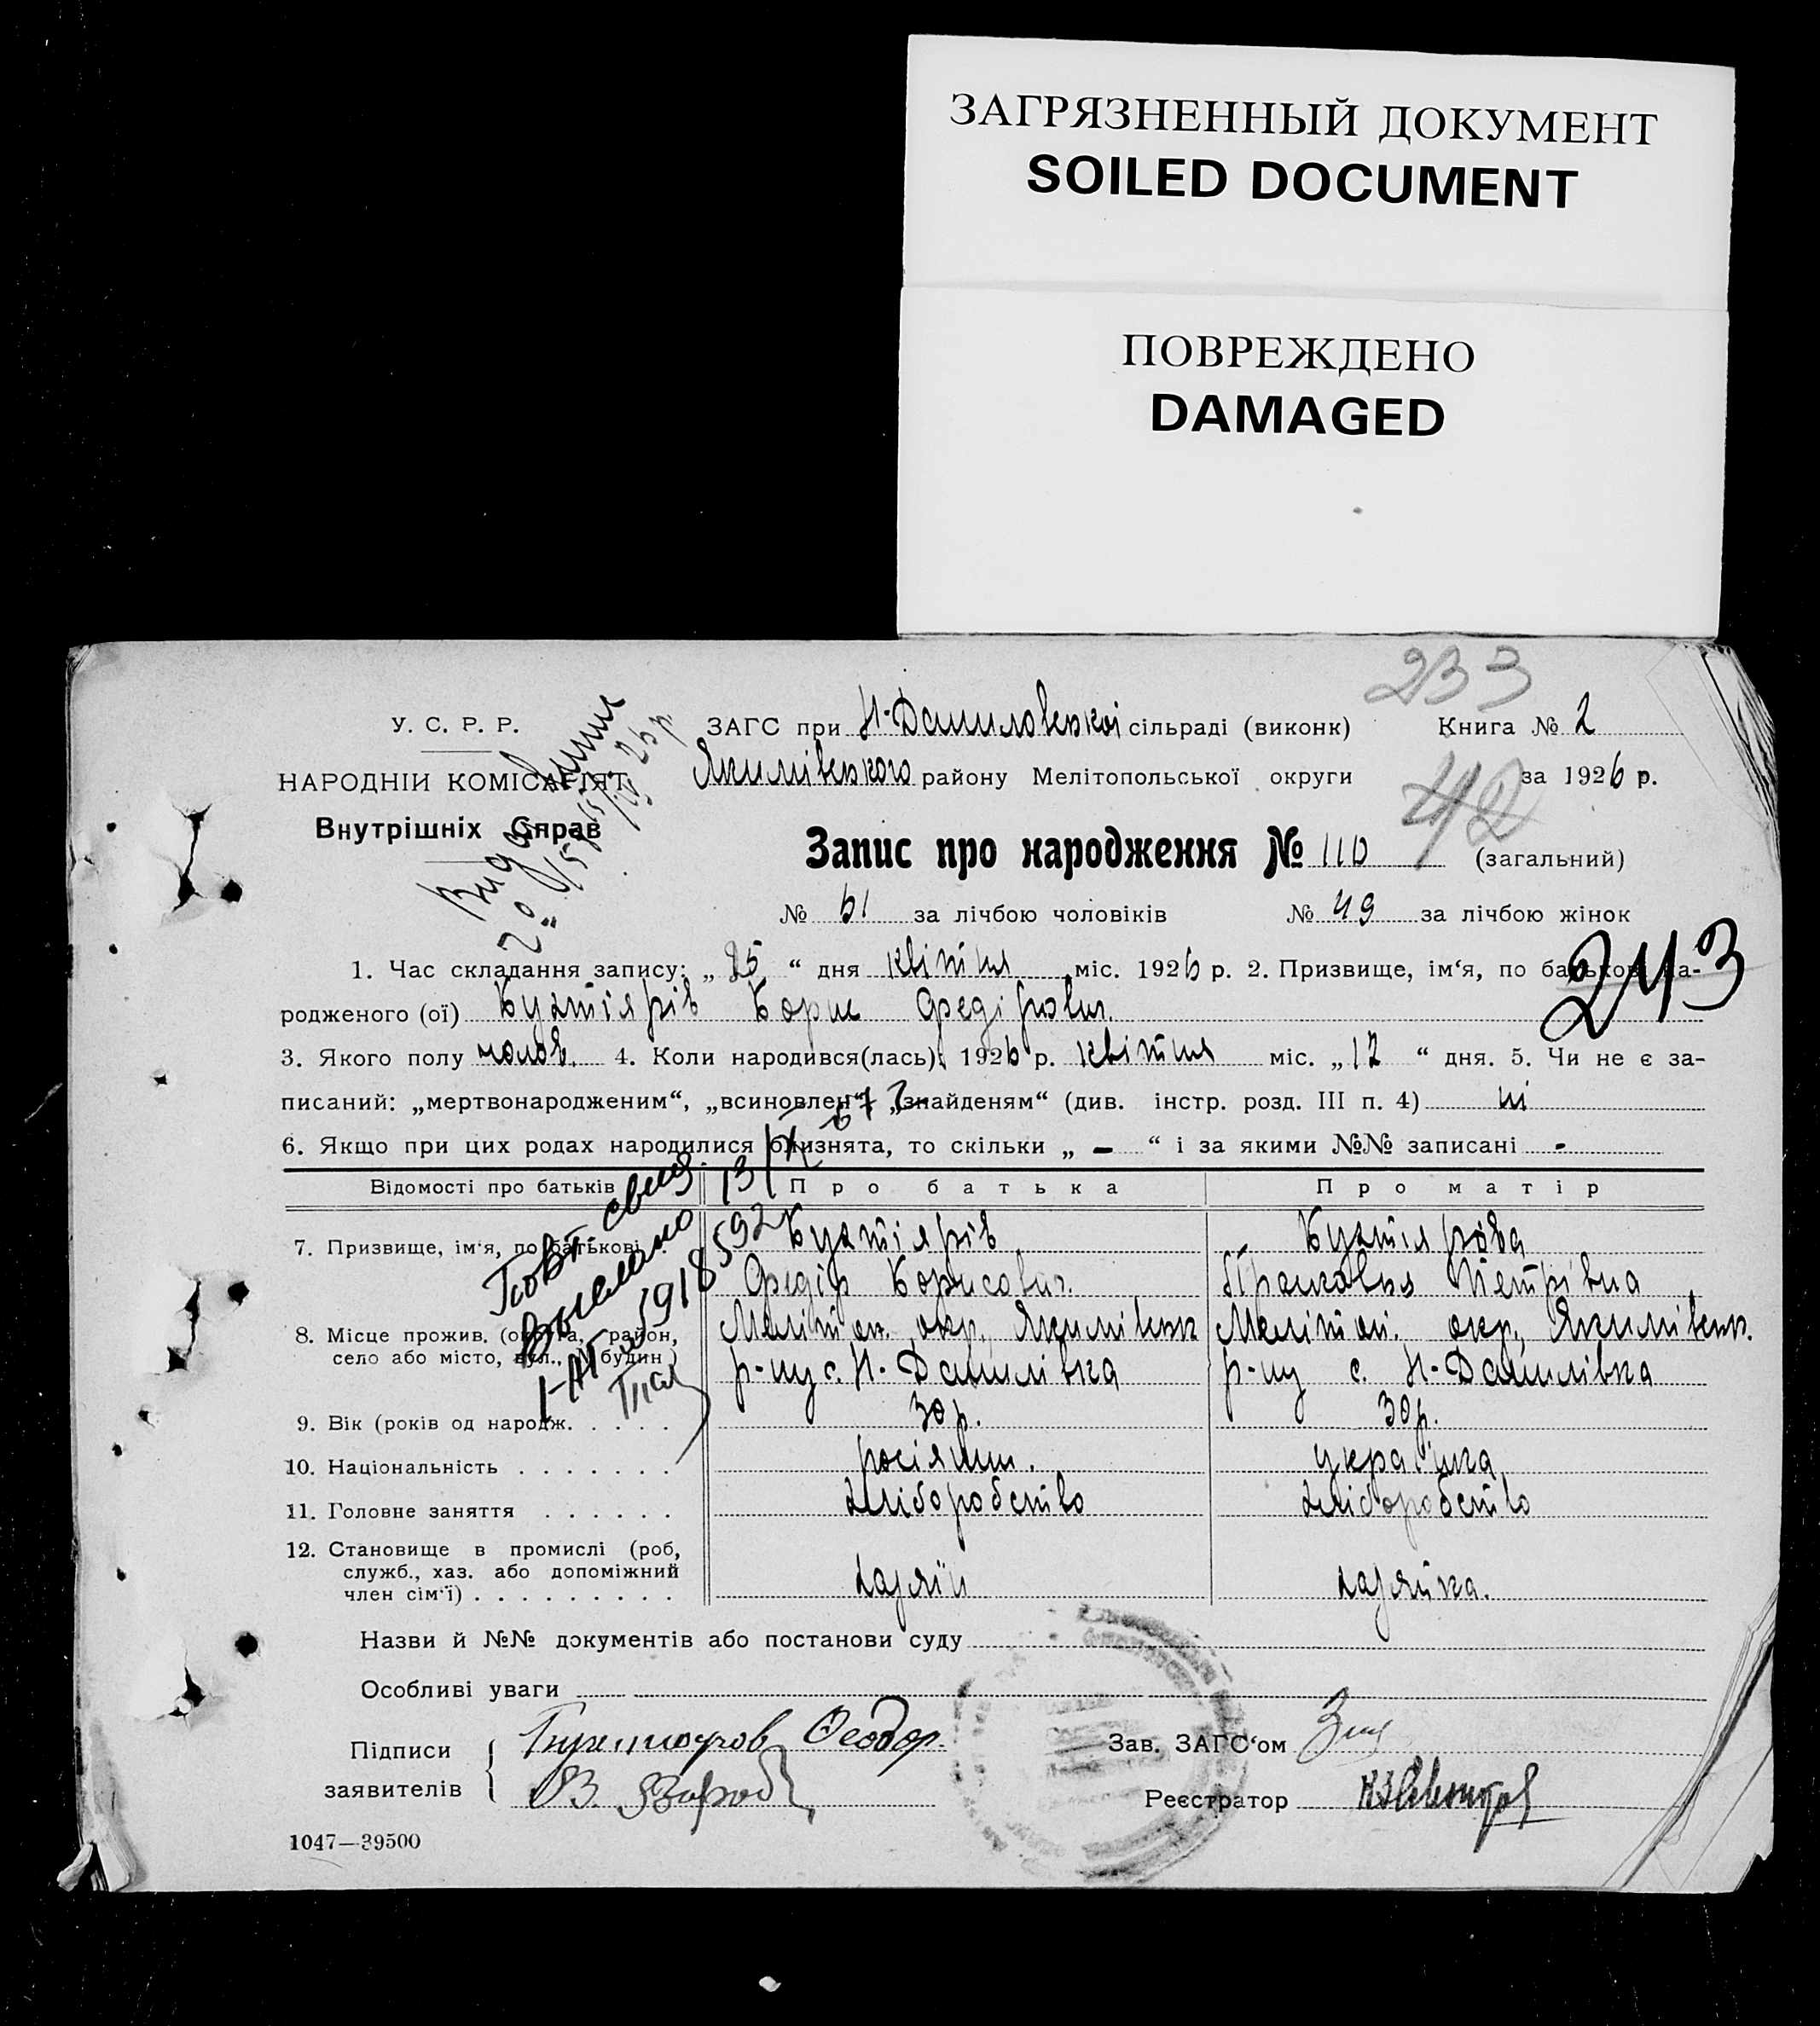 ЗАГРЯЗНЕННЫЙ ДОКУМЕНТ
SOILED DOCUMENT
ПОВРЕЖДЕНО
DAMAGED
233
У. С. Р. Р.
ЗАГС при Н-Даниловської сільраді (виконк) Книга № 2
НАРОДНІЙ КОМІСАРІЯТ
Якимівського району Мелітопольської округи за 1926 р.
42
Внутрішніх Справ
Запис про народження № 110 (загальний)
№ 61 за лічбою чоловіків № 49 за лічбою жінок
243
1. Час складання запису: „25“ дня квітня міс. 1926 р. 2. Призвище, ім‘я, по батькові на-
родженого (ої) Борис Федірович.
3. Якого полу чолов. 4. Коли народився(лась). 1926 р. квітня міс. „12“ дня. 5. Чи не є за-
писаний: „мертвонародженим“, „всиновлен“, „знайденям“ (див. інстр. розд. III п. 4) ні
6. Якщо при цих родах народилися близнята, то скільки „ - “ і за якими №№ записані -
Відомості про батьків Про батька Про матір
7. Призвище, ім‘я, по батькові
Федір Борисович. Парасковья Петрівна
8. Місце прожив. (округа, район, Меліпол. окр. Якимівськ Меліпол. окр. Якимівськ.
село або місто, вул., № будин. р-ну с. Н-Данилівка р-ну с. Н-Данилівка
9. Вік (років од народж. . . . . 30 р. 30 р.
10. Національність . . . . . . . росіянин. українка
11. Головне заняття . . . . . . хліборобство хліборобство
12. Становище в промислі (роб,
служб., хаз. або допоміжний
член сім‘ї) . . . . . . . . . хазяїн хазяйка.
Повт. свид.
выслано
Назви й №№ документів або постанови суду
Особливі уваги
Підписи
заявителів
Феодор.
Зав. ЗАГС‘ом
Реєстратор
1047—39500